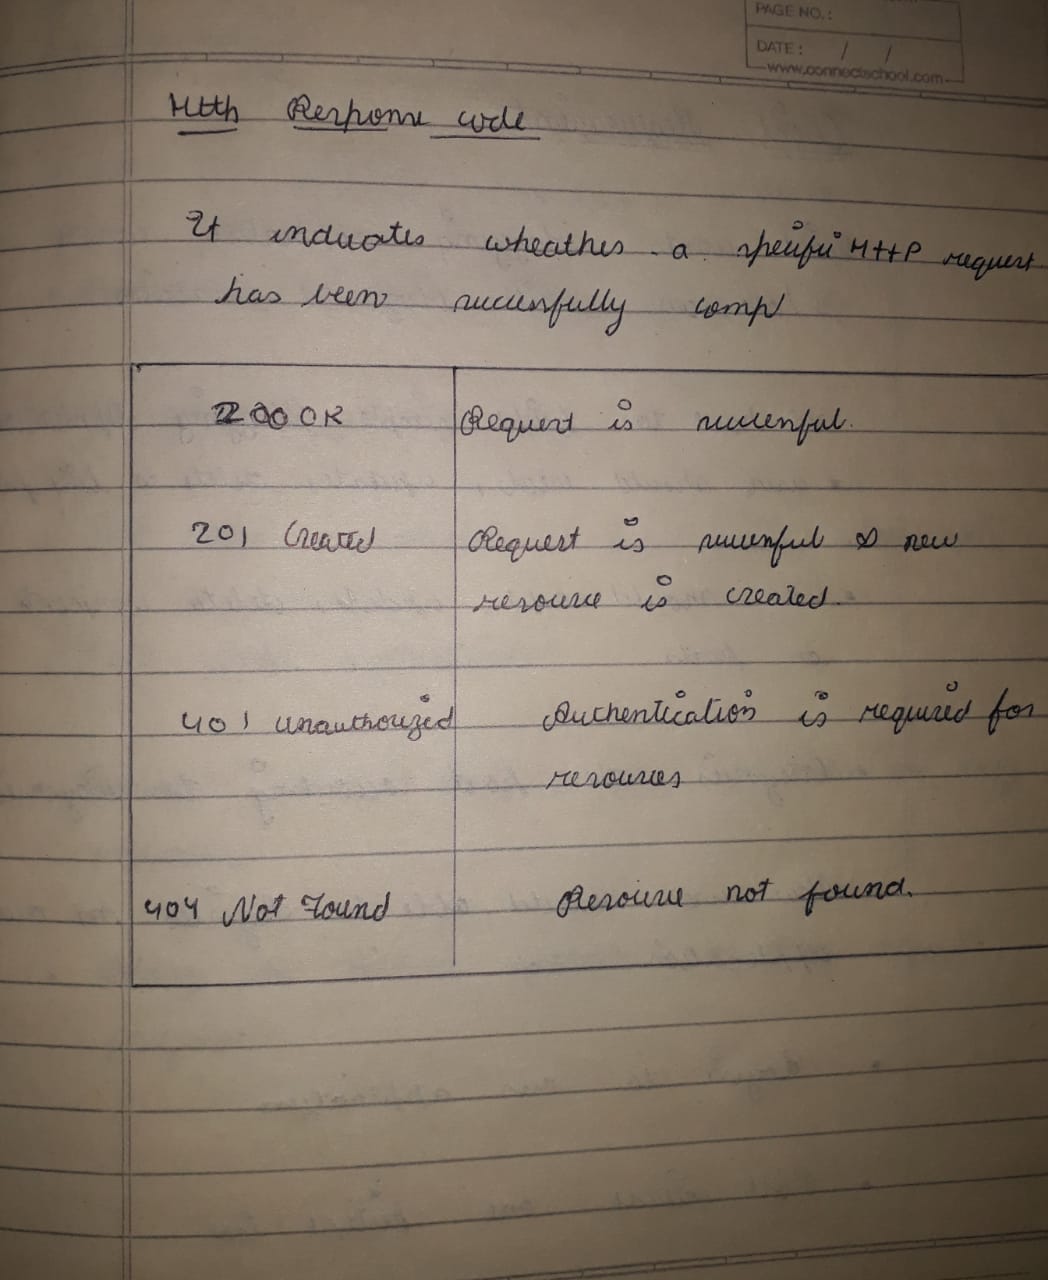 PAGE NO.:
DATE: / /
www.connectschool.com
Http Response code
It indicates wheather a specific HTTP request
has been successfully comp
200 OK Request is successful.
201 Created Request is successful & new
resource is created.
401 Unauthorized Authentication is required for
resources
404 Not Found Resource not found.